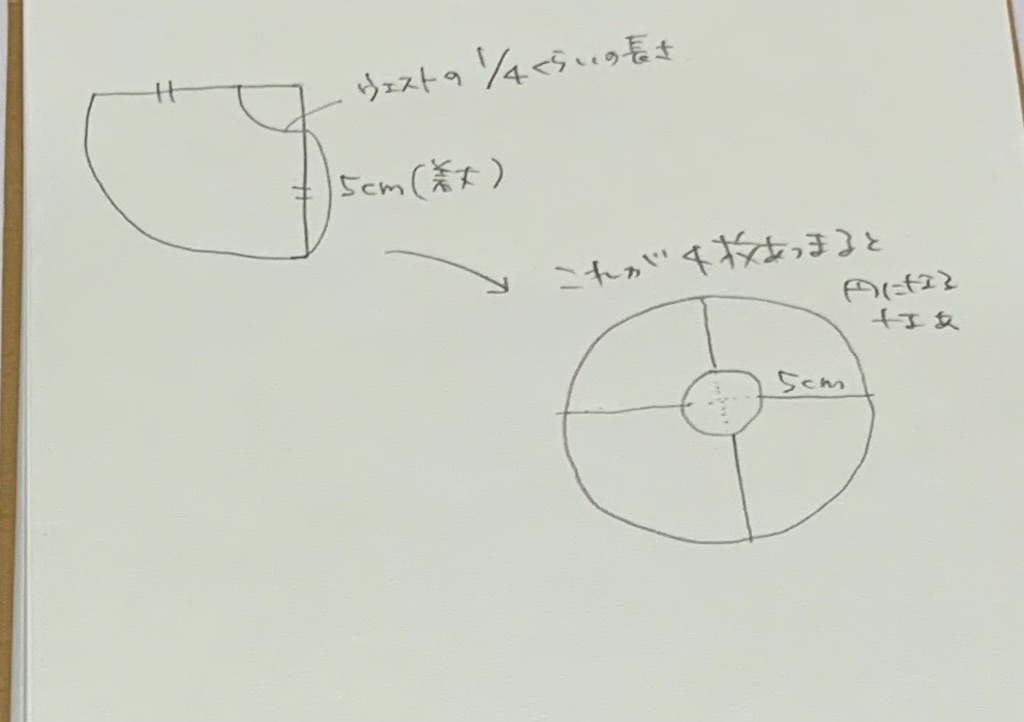 ウエストの 1/4くらいの長さ
5cm(着丈)
これが4枚あつまると
円になる
なぁ
5cm